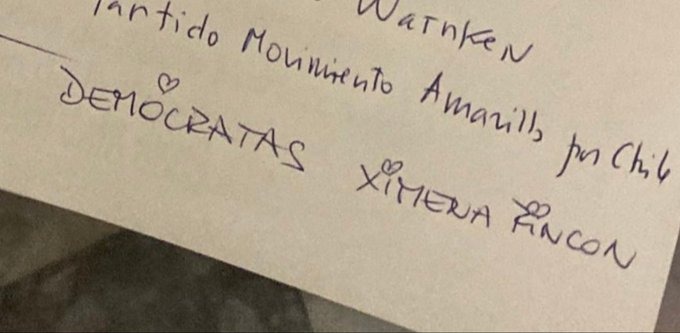 Warnken
Partido Movimiento Amarillo por Chile
DEMÓCRATAS XIMENA RINCON